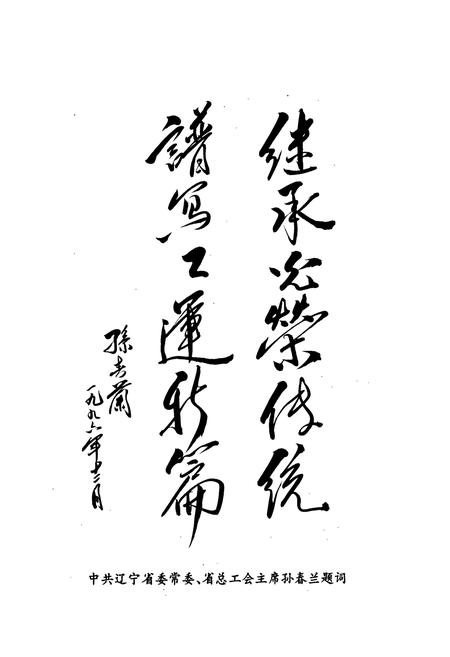 继承光荣传统
谱写工運新篇
孫春蘭
一九九六年十二月
中共辽宁省委常委、省总工会主席孙春兰题词